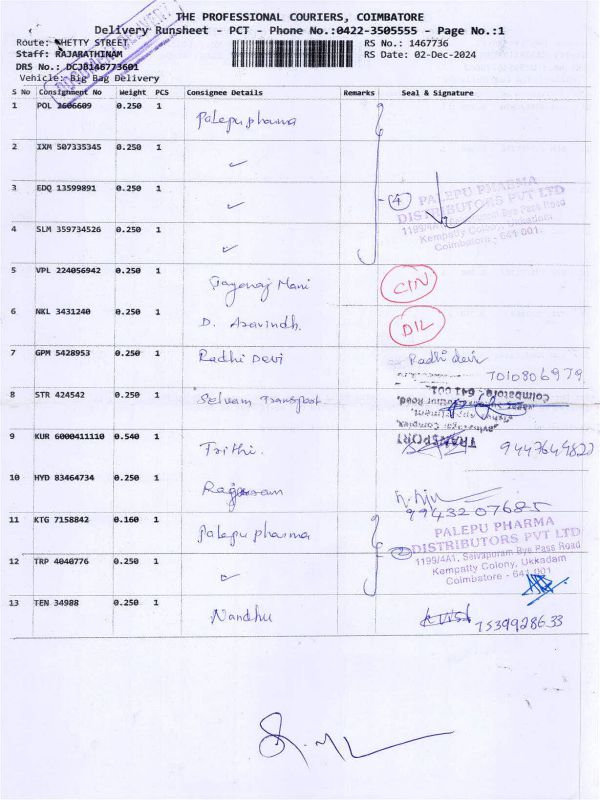 THE PROFESSIONAL COURIERS, COIMBATORE
Delivery Runsheet - PCT - Phone No.:0422-3505555 - Page No.:1
Route: SHETTY STREET
RS No.: 1467736
Staff: RAJARATHINAM
RS Date: 02-Dec-2024
DRS No.: DCJB146773601
Vehicle: Big Bag Delivery
S No Consignment No Weight PCS Consignee Details Remarks Seal & Signature
1 POL 2606609 0.250 1 Palepu pharma
2 IXM 507335345 0.250 1
3 EDQ 13599891 0.250 1
4
PALEPU PHARMA
DISTRIBUTORS PVT LTD
1199/4A1, Selvapuram Bye Pass Road
Kempatty Colony, Ukkadam
Coimbatore - 641 001.
4 SLM 359734526 0.250 1
5 VPL 224056942 0.250 1 Mani CIN
6 NKL 3431240 0.250 1 D. Aravindh. DIL
7 GPM 5428953 0.250 1 Radhi Devi Radhi devi
7010806979
8 STR 424542 0.250 1 Selvam Transport
Coimbatore - 641 001.
TRANSPORT
9 KUR 6000411110 0.540 1 Frithi.
9447644822
10 HYD 83464734 0.250 1
9943207685
11 KTG 7158842 0.160 1 Palepu pharma
2
PALEPU PHARMA
DISTRIBUTORS PVT LTD
1199/4A1, Selvapuram Bye Pass Road
Kempatty Colony, Ukkadam
Coimbatore - 641 001
12 TRP 4040776 0.250 1
13 TEN 34988 0.250 1 Nandhu 7539928633